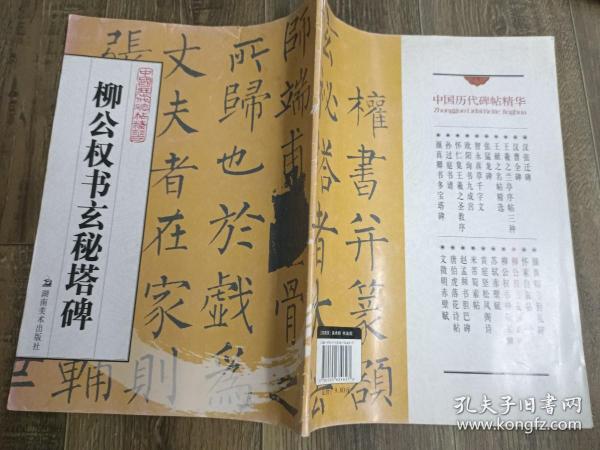 柳公权书玄秘塔碑
中国历代碑帖精华
湖南美术出版社
張
丈夫者在家
所歸也於戲爲
輔則
師端甫
骨
玄秘塔者大
公
權書并篆額
中国历代碑帖精华
Zhongguo Lidai Beitie Jinghua
汉张迁碑
汉曹全碑
王羲之兰亭序帖三种
王献之名帖精选
张猛龙碑
智永真草千字文
欧阳询书九成宫
怀仁集王羲之圣教序
孙过庭书谱
颜真卿书多宝塔碑
苏轼赤壁赋
黄庭坚松风阁诗
米芾蜀素帖
赵孟頫书胆巴碑
唐伯虎落花诗帖
文徵明赤壁赋
孔夫子旧书网
kongfz.com